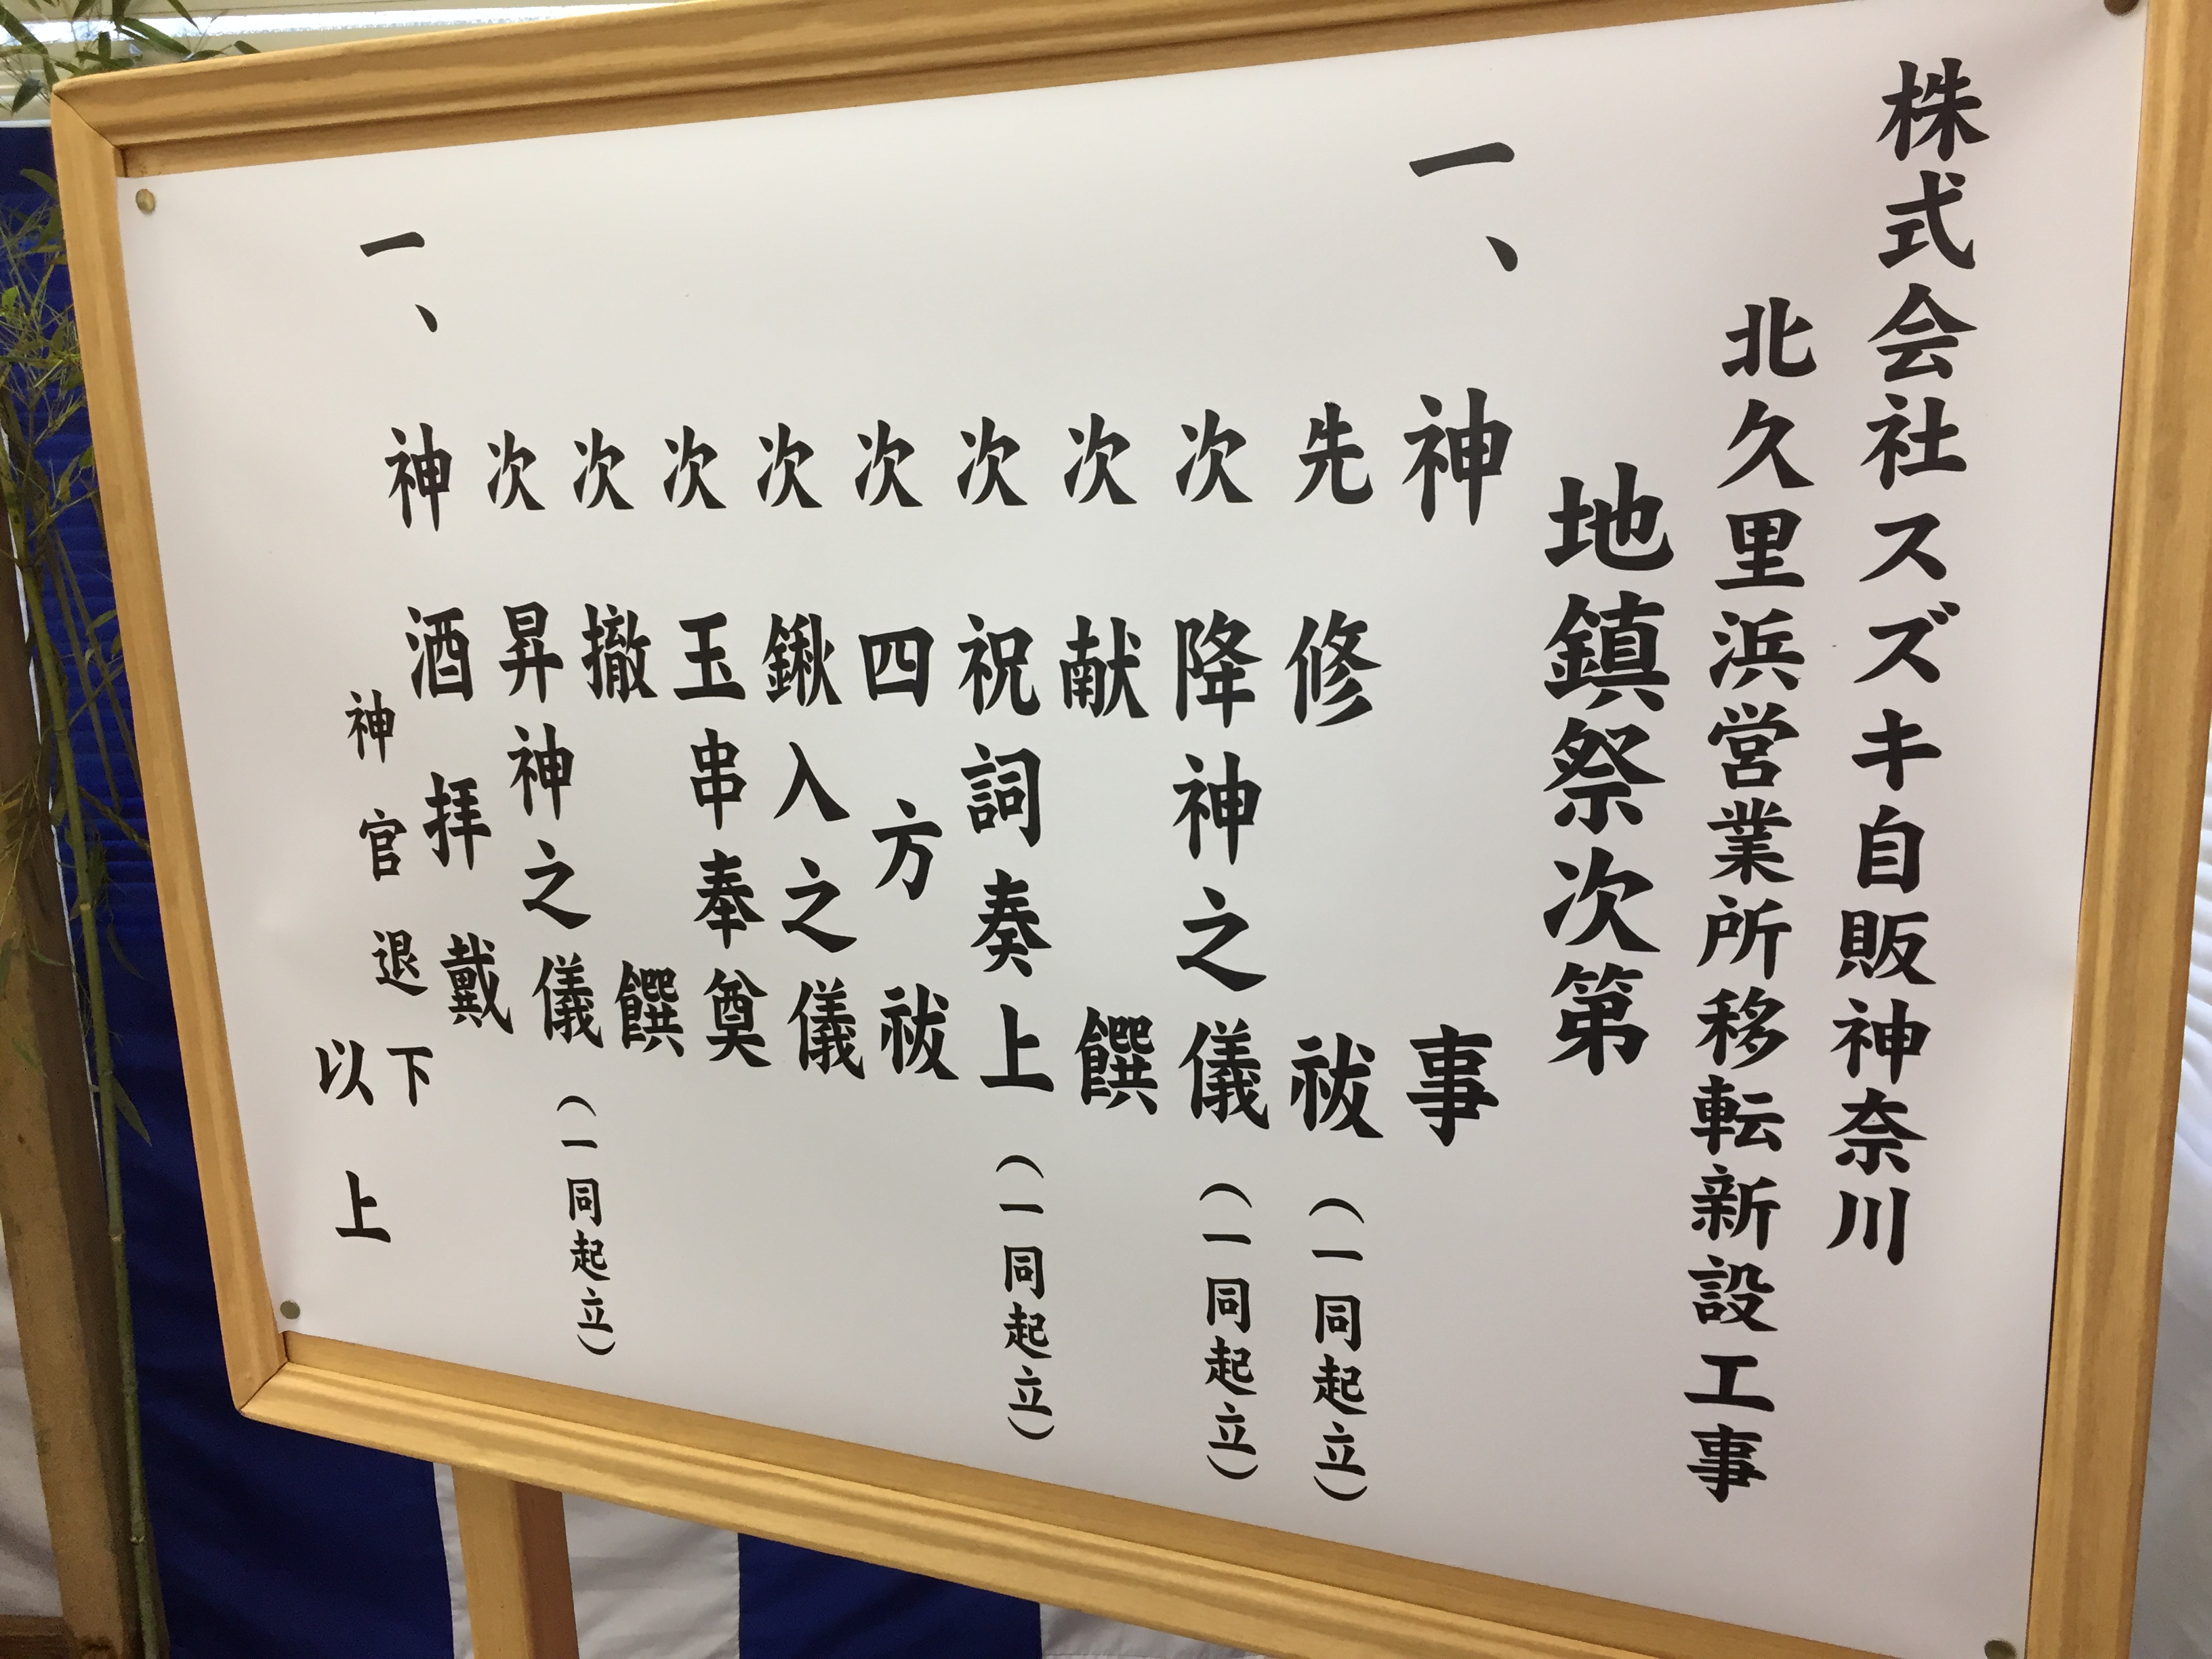 株式会社スズキ自販神奈川
北久里浜営業所移転新設工事
地鎮祭次第
一、神事
先 修祓（一同起立）
次 降神之儀（一同起立）
次 献饌
次 祝詞奏上（一同起立）
次 四方祓
次 鍬入之儀
次 玉串奉奠
次 撤饌
次 昇神之儀（一同起立）
一、神酒拝戴
神官退下
以上